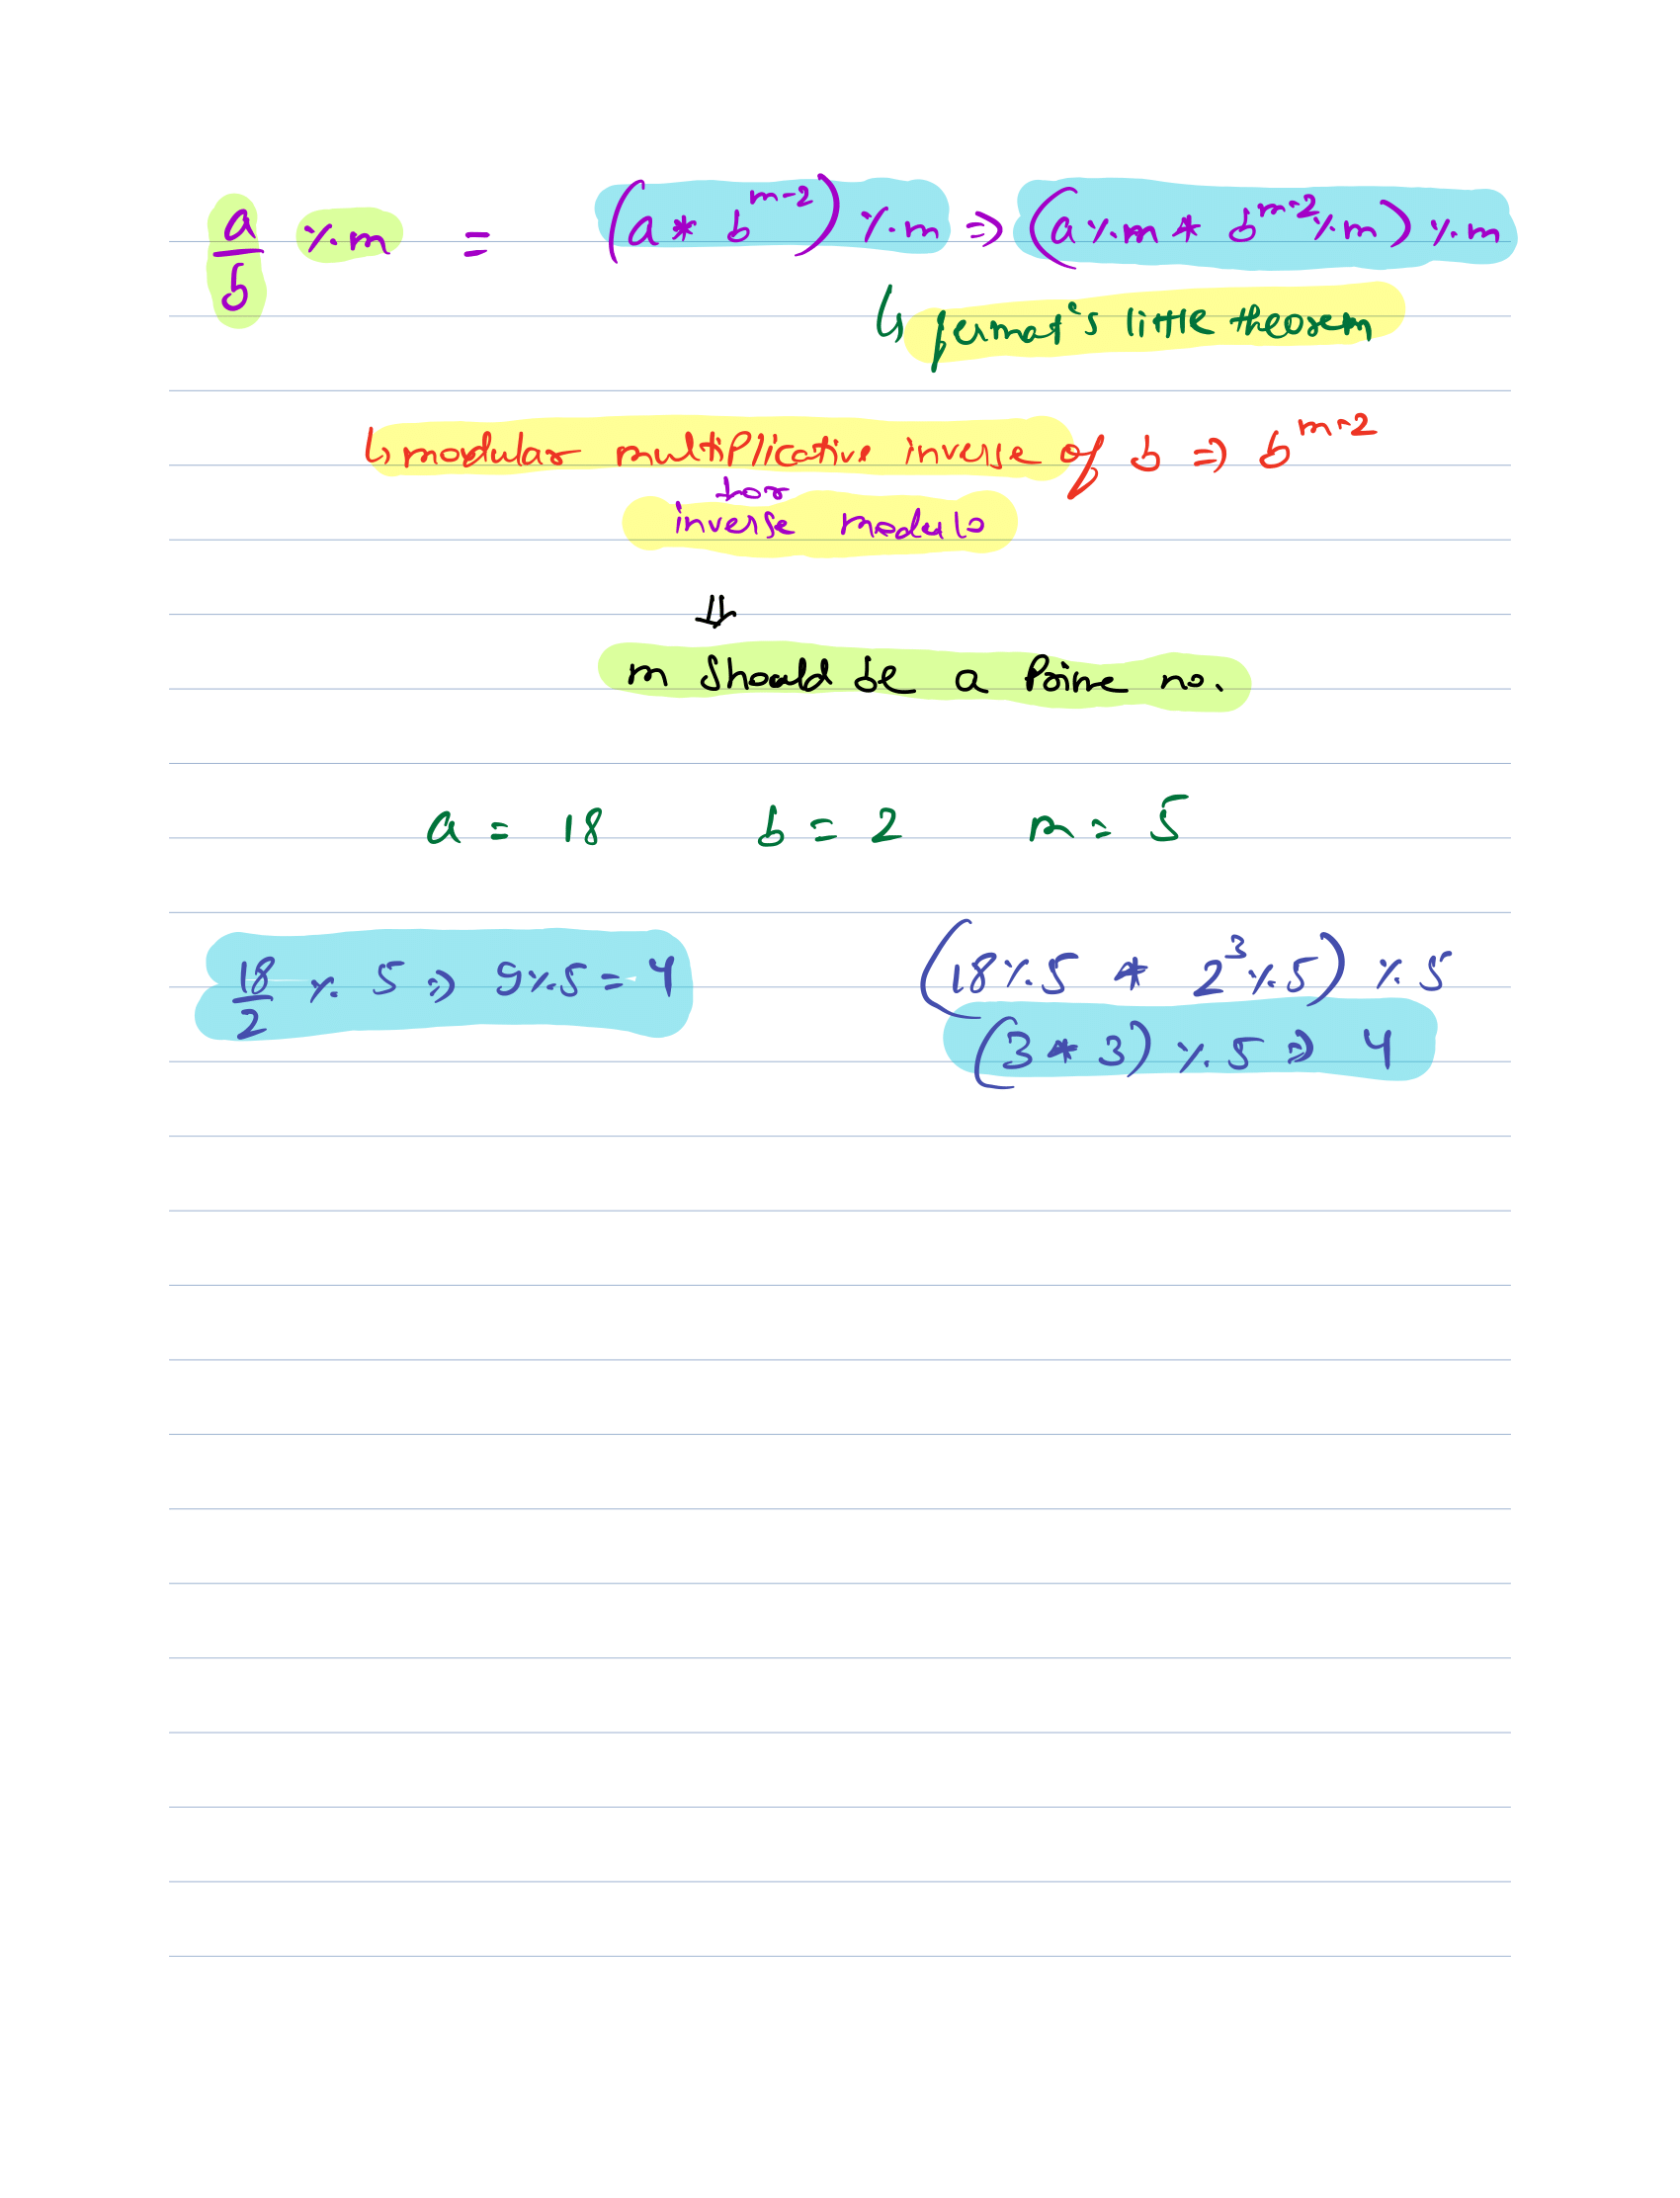 a/b % m = (a * b^(m-2)) % m => (a % m * b^(m-2) % m) % m
↳ fermat's little theorem
↳ modular multiplicative inverse of b => b^(m-2)
↓ or
inverse modulo
⇓
m should be a Prime no.
a = 18 b = 2 m = 5
18/2 % 5 => 9 % 5 = 4
(18 % 5 * 2^3 % 5) % 5
(3 * 3) % 5 => 4